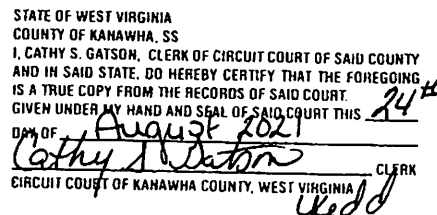 STATE OF WEST VIRGINIA
COUNTY OF KANAWHA, SS
I, CATHY S. GATSON, CLERK OF CIRCUIT COURT OF SAID COUNTY
AND IN SAID STATE, DO HEREBY CERTIFY THAT THE FOREGOING
IS A TRUE COPY FROM THE RECORDS OF SAID COURT.
GIVEN UNDER MY HAND AND SEAL OF SAID COURT THIS 24th
DAY OF August 2021
Cathy S Gatson CLERK
CIRCUIT COURT OF KANAWHA COUNTY, WEST VIRGINIA